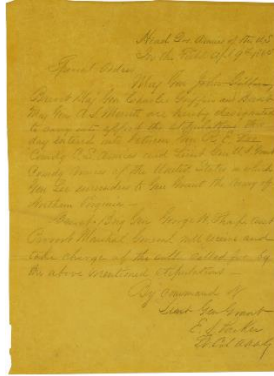 Head Qrs Armies of the U.S.
In the Field Apl 9th 1865
Special Orders
Maj Gen John Gibbon
Brevet Maj Gen Charles Griffin and Brevet
Maj Gen Merritt are hereby designated
to carry into effect the stipulations this
day entered into between Gen R. E. Lee
Comdg C.S. Armies and Lieut Gen U.S. Grant
Comdg Armies of the United States in which
Gen Lee surrenders to Gen Grant the Army of
Northern Virginia
Brevet Brig Gen George H. Sharpe
Provost Marshal General will
take charge of the rolls called for by
the above mentioned stipulations
By command of
Lieut Gen Grant
E. S. Parker
Lt Col